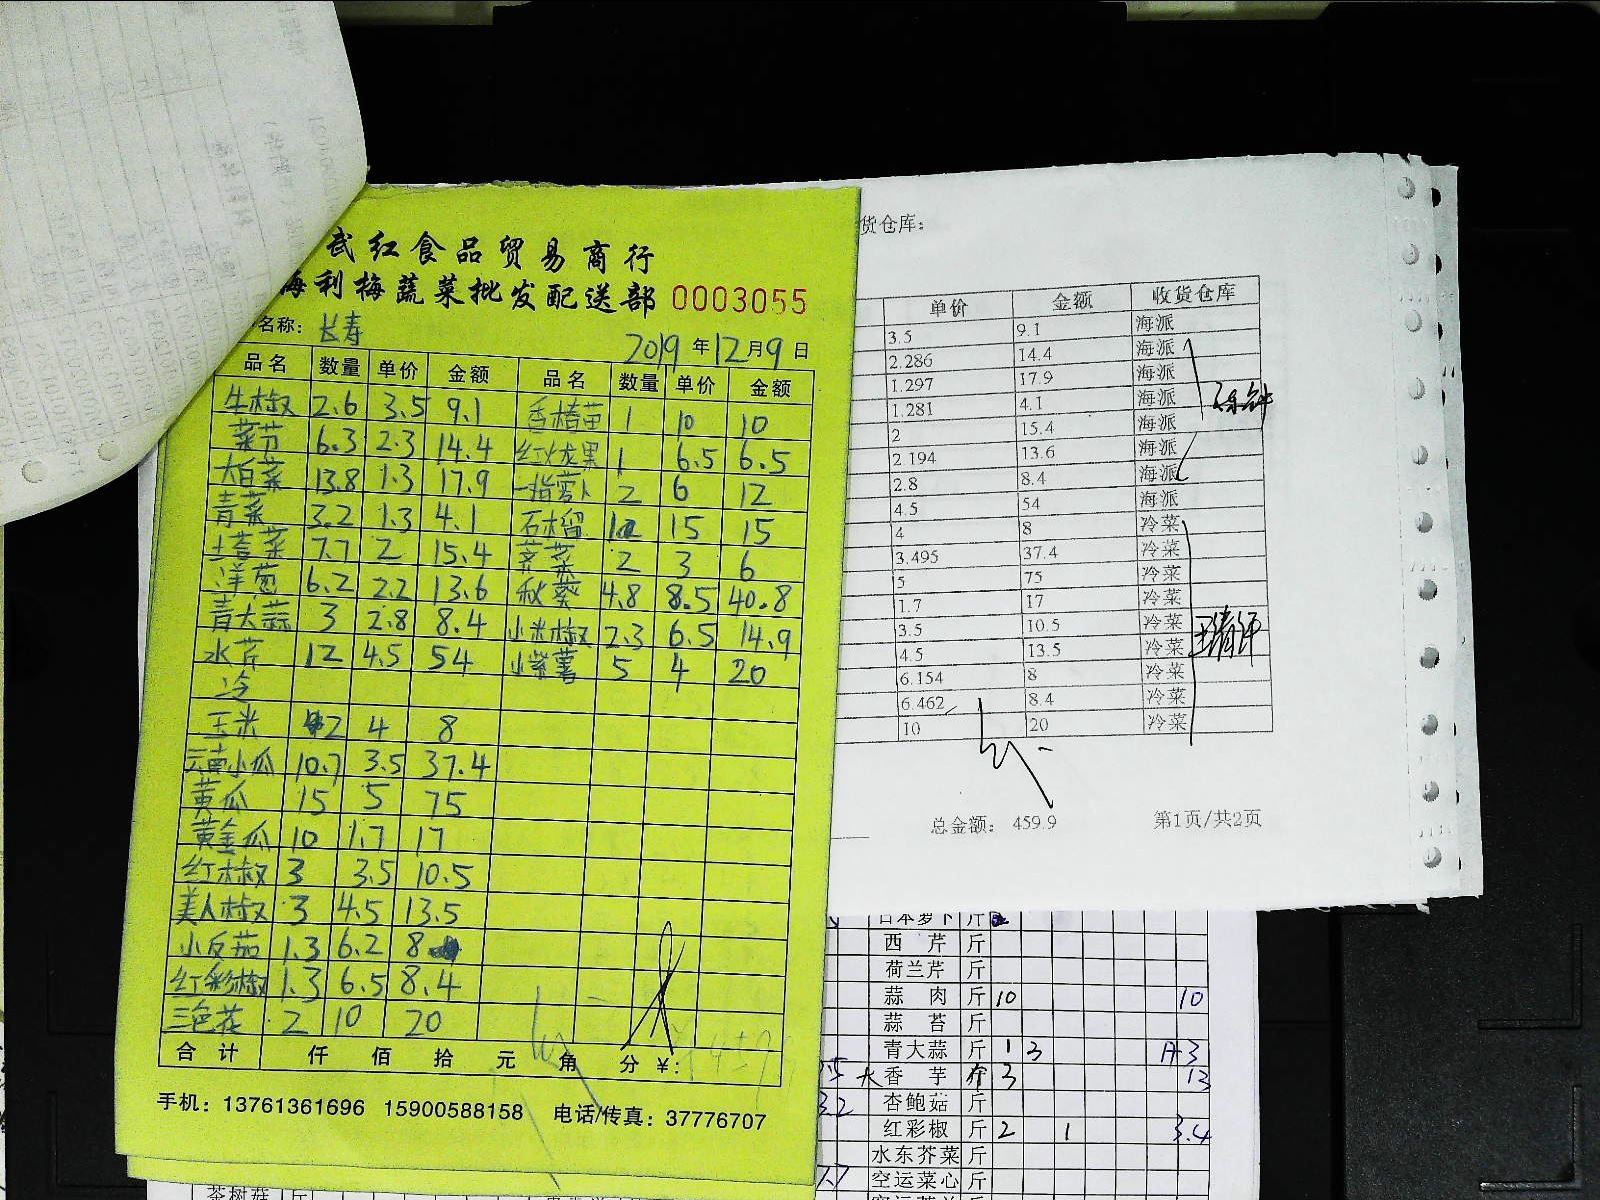 武红食品贸易商行
海利梅蔬菜批发配送部 0003055
名称: 长寿
2019 年 12 月 9 日
品名 数量 单价 金额 品名 数量 单价 金额
牛椒 2.6 3.5 9.1 香椿苗 1 10 10
菜苋 6.3 2.3 14.4 红火龙果 1 6.5 6.5
大白菜 13.8 1.3 17.9 一指萝卜 2 6 12
青菜 3.2 1.3 4.1 石榴 1 15 15
塔菜 7.7 2 15.4 荠菜 2 3 6
洋葱 6.2 2.2 13.6 秋葵 4.8 8.5 40.8
青大蒜 3 2.8 8.4 小米椒 2.3 6.5 14.9
水芹 12 4.5 54 小紫薯 5 4 20
冷
玉米 2 4 8
云南小瓜 10.7 3.5 37.4
黄瓜 15 5 75
黄金瓜 10 1.7 17
红椒 3 3.5 10.5
美人椒 3 4.5 13.5
小反茄 1.3 6.2 8
红彩椒 1.3 6.5 8.4
三色花 2 10 20
合计 仟 佰 拾 元 角 分 ¥:
手机: 13761361696 15900588158 电话/传真: 37776707
货仓库:
单价 金额 收货仓库
3.5 9.1 海派
2.286 14.4 海派
1.297 17.9 海派
1.281 4.1 海派
2 15.4 海派
2.194 13.6 海派
2.8 8.4 海派
4.5 54 海派
4 8 冷菜
3.495 37.4 冷菜
5 75 冷菜
1.7 17 冷菜
3.5 10.5 冷菜
4.5 13.5 冷菜
6.154 8 冷菜
6.462 8.4 冷菜
10 20 冷菜
总金额: 459.9 第1页/共2页
日本萝卜 斤
西芹 斤
荷兰芹 斤
蒜肉 斤 10 10
蒜苔 斤
青大蒜 斤 1 3
香芋 3 13
杏鲍菇 斤
红彩椒 斤 2 1 3.4
水东芥菜 斤
空运菜心 斤
茶树菇 斤